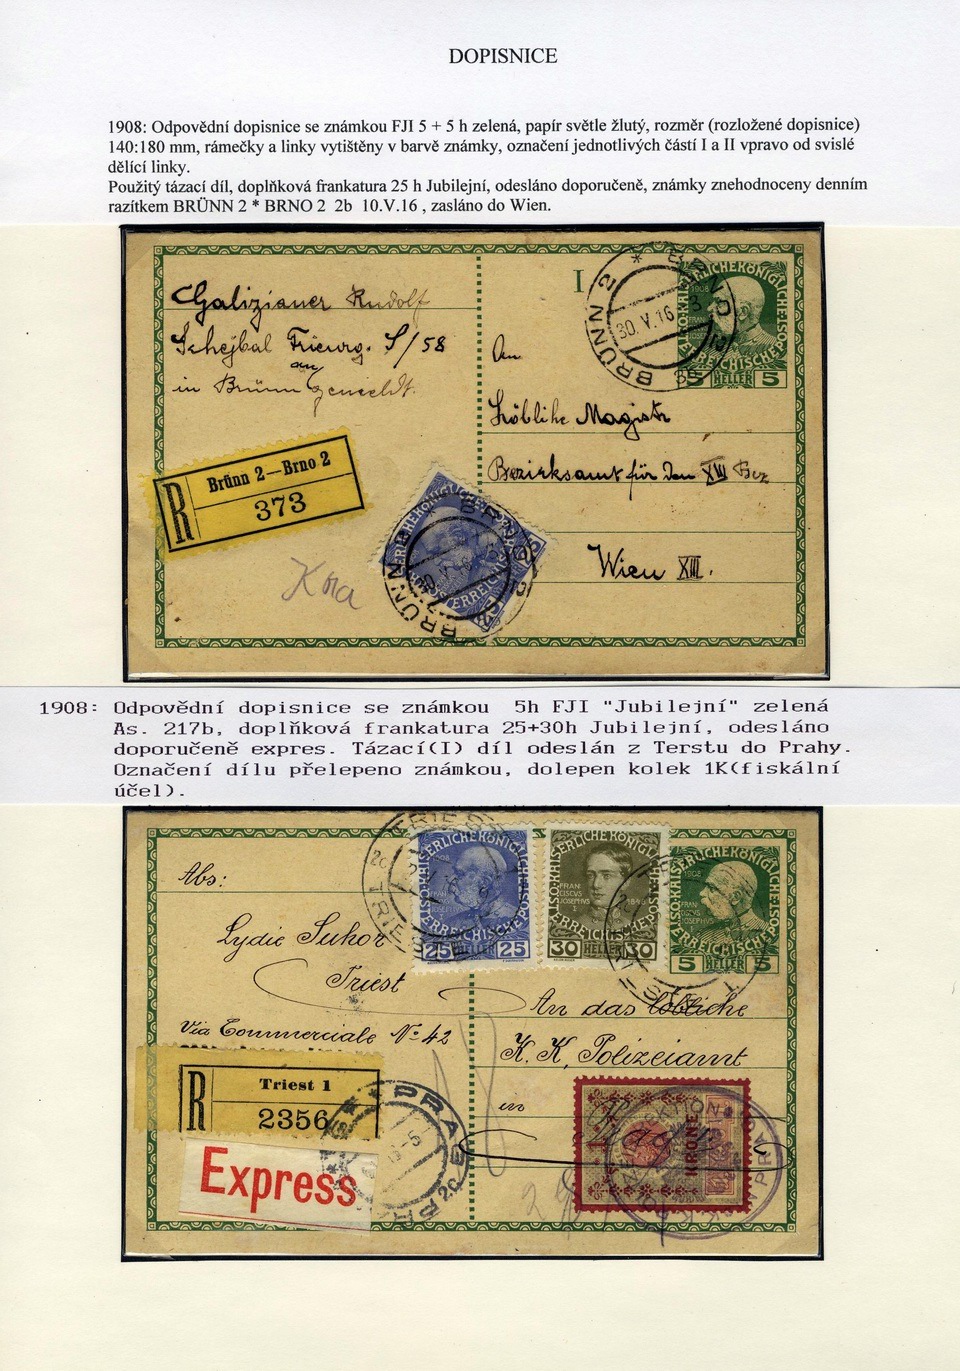 DOPISNICE
1908: Odpovědní dopisnice se známkou FJI 5 + 5 h zelená, papír světle žlutý, rozměr (rozložené dopisnice)
140:180 mm, rámečky a linky vytištěny v barvě známky, označení jednotlivých částí I a II vpravo od svislé
dělící linky.
Použitý tázací díl, doplňková frankatura 25 h Jubilejní, odesláno doporučeně, známky znehodnoceny denním
razítkem BRÜNN 2 * BRNO 2 2b 10.V.16 , zasláno do Wien.
Galizianer Rudolf
Schejbal 5/58
in Brünn
I
BRÜNN 2 * BRNO 2
30.V.16
1908
5 HELLER 5
An
Löbliche Magistr
Bezirksamt für den XIII Bez
Wien XIII.
R
Brünn 2—Brno 2
373
BRÜNN 2 BRNO 2
1908: Odpovědní dopisnice se známkou 5h FJI "Jubilejní" zelená
As. 217b, doplňková frankatura 25+30h Jubilejní, odesláno
doporučeně expres. Tázací(I) díl odeslán z Terstu do Prahy.
Označení dílu přelepeno známkou, dolepen kolek 1K(fiskální
účel).
Abs:
Lydie Sukor
Triest
Via Commerciale No 42
R
Triest 1
2356
Express
KAISERLICHEKÖNIGLICHE
ÖSTERREICHISCHE POST
25 HELLER 25
KAISERLICHEKÖNIGLICHE
FRANCISCVS JOSEPHVS
1848
ÖSTERREICHISCHE POST
30 HELLER 30
KAISERLICHEKÖNIGLICHE
1908
FRANCISCVS JOSEPHVS
ÖSTERREICHISCHE POST
5 HELLER 5
An das löbliche
K. K. Polizeiamt
in
Prag
KRONE